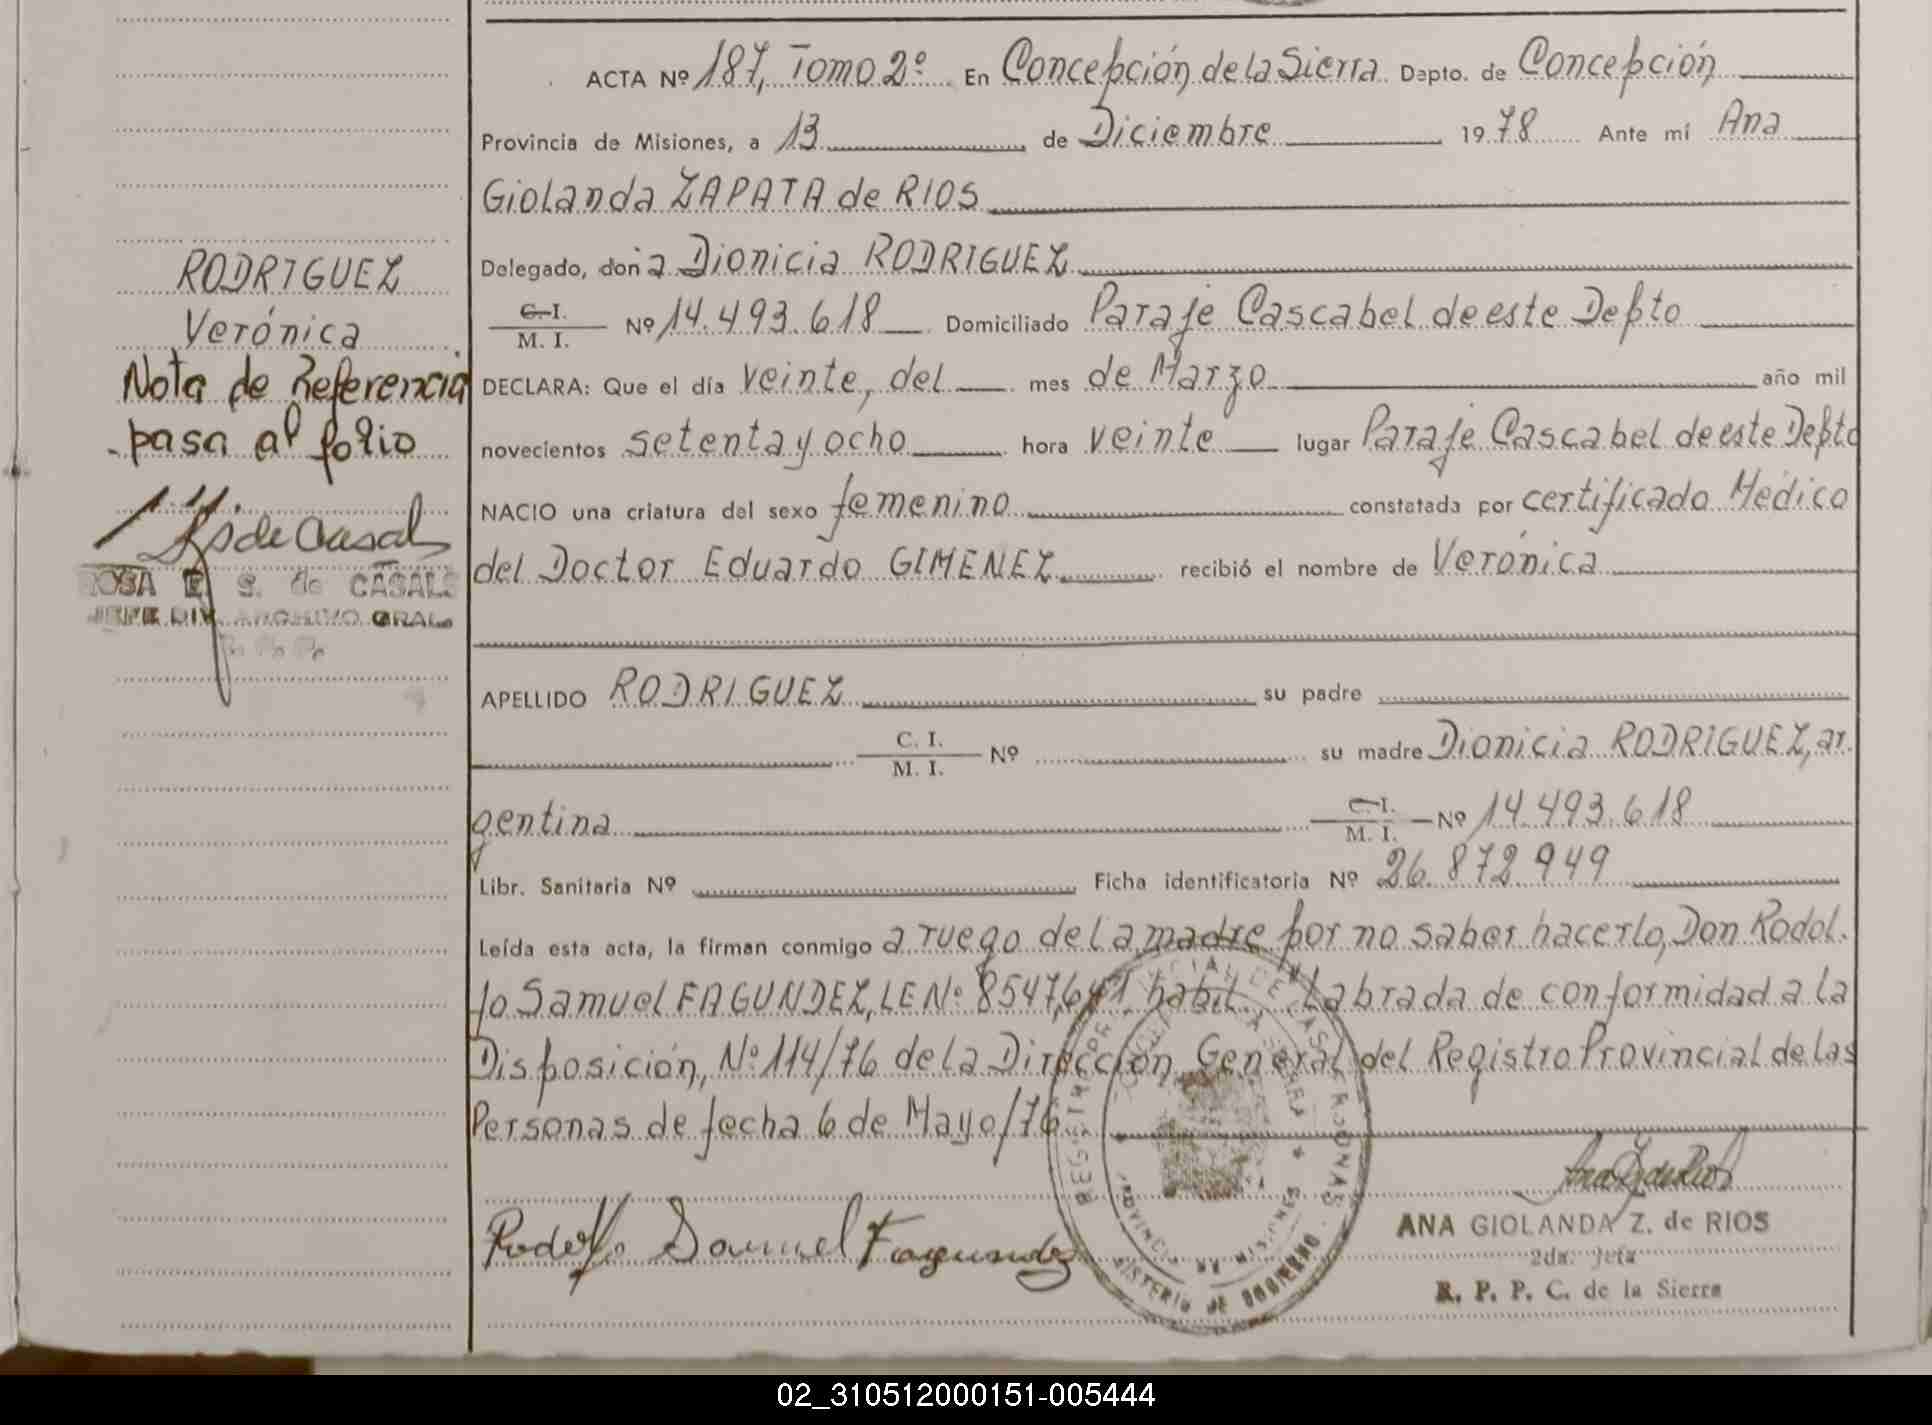 ACTA Nº 187, Tomo 2º En Concepción de la Sierra Dapto. de Concepción
Provincia de Misiones, a 13 de Diciembre 1978 Ante mí Ana
Giolanda ZAPATA de RIOS
Delegado, don a Dionicia RODRIGUEZ
C. I.
M. I. Nº 14.493.618 Domiciliado Paraje Cascabel de este Depto
DECLARA: Que el día veinte, del mes de Marzo año mil
novecientos setenta y ocho hora veinte lugar Paraje Cascabel de este Depto
NACIO una criatura del sexo femenino constatada por certificado Médico
del Doctor Eduardo GIMENEZ recibió el nombre de Verónica
APELLIDO RODRIGUEZ su padre
C. I.
M. I. Nº su madre Dionicia RODRIGUEZ, ar.
gentina C. I.
M. I. Nº 14.493.618
Libr. Sanitaria Nº Ficha identificatoria Nº 26.872.949
Leída esta acta, la firman conmigo a ruego de la madre por no saber hacerlo, Don Rodol.
fo Samuel FAGUNDEZ, LE Nº 8547,641, habil. Labrada de conformidad a la
Disposición, Nº 114/76 de la Dirección General del Registro Provincial de las
Personas de fecha 6 de Mayo/76
Rodolfo Samuel Fagundez
Ana Z de Rios
ANA GIOLANDA Z. de RIOS
2da. Jefa
R. P. P. C. de la Sierra
RODRIGUEZ
Verónica
Nota de Referencia
pasa al folio
S de Casals
ROSA E. S. de CASALS
JEFE DIV. ARCHIVO GRAL.
R. P. P.
MINISTERIO DE GOBIERNO
PROVINCIA DE MISIONES
02_310512000151-005444